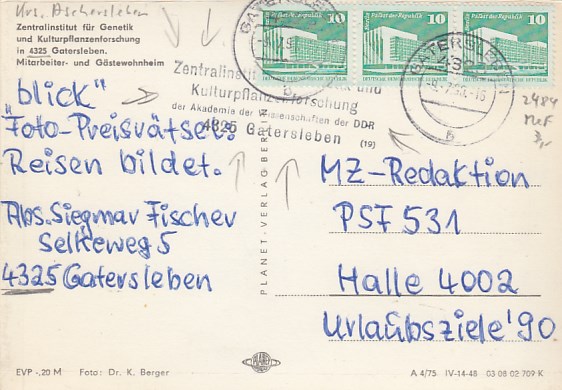 Krs. Aschersleben
Zentralinstitut für Genetik
und Kulturpflanzenforschung
in 4325 Gatersleben.
Mitarbeiter- und Gästewohnheim
10 10 10
Palast der Republik
GATERSLEBEN
GATERSLEBEN
4325
b
b
Zentralinstitut für Genetik und
Kulturpflanzenforschung
der Akademie der Wissenschaften der DDR
4325 Gatersleben
(19)
2484
"blick"
"Foto-Preisrätsel:
Reisen bildet.
Abs. Siegmar Fischer
Selkeweg 5
4325 Gatersleben
PLANET-VERLAG BERLIN
MZ-Redaktion
PSF 531
Halle 4002
Urlaubsziele '90
EVP -,20 M Foto: Dr. K. Berger
PLANET
A 4/75 IV-14-48 03 08 02 709 K